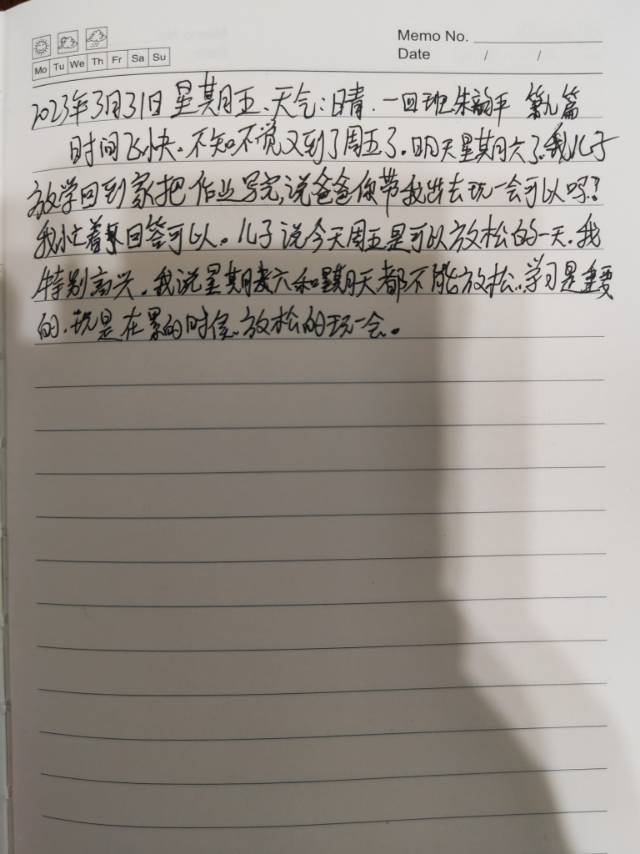 Memo No.
Mo Tu We Th Fr Sa Su
Date / /
2023年3月31日 星期五、天气:晴.一四班 朱韵平 第九篇
时间飞快.不知不觉又到了周五了.明天星期六了.我儿子
放学回到家把作业写完说爸爸你带我出去玩一会可以吗?
我小忙着回答可以。儿子说今天周五是可以放松的一天.我
特别高兴.我说星期六和星期天都不能放松.学习是重要
的.玩是在累的时候.放松的玩一会。